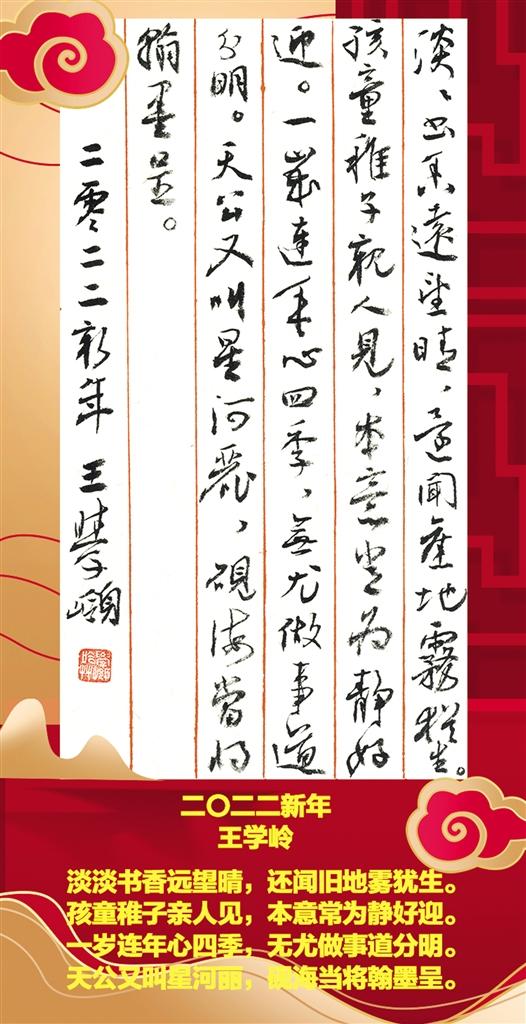 淡淡书香遠望晴，还闻旧地霧猶生。
孩童稚子親人見，本意常为静好
迎。一歲連年心四季，無尤做事道
分明。天公又叫星河麗，硯海當将
翰墨呈。
二零二二新年 王學嶺
二〇二二新年
王学岭
淡淡书香远望晴，还闻旧地雾犹生。
孩童稚子亲人见，本意常为静好迎。
一岁连年心四季，无尤做事道分明。
天公又叫星河丽，砚海当将翰墨呈。